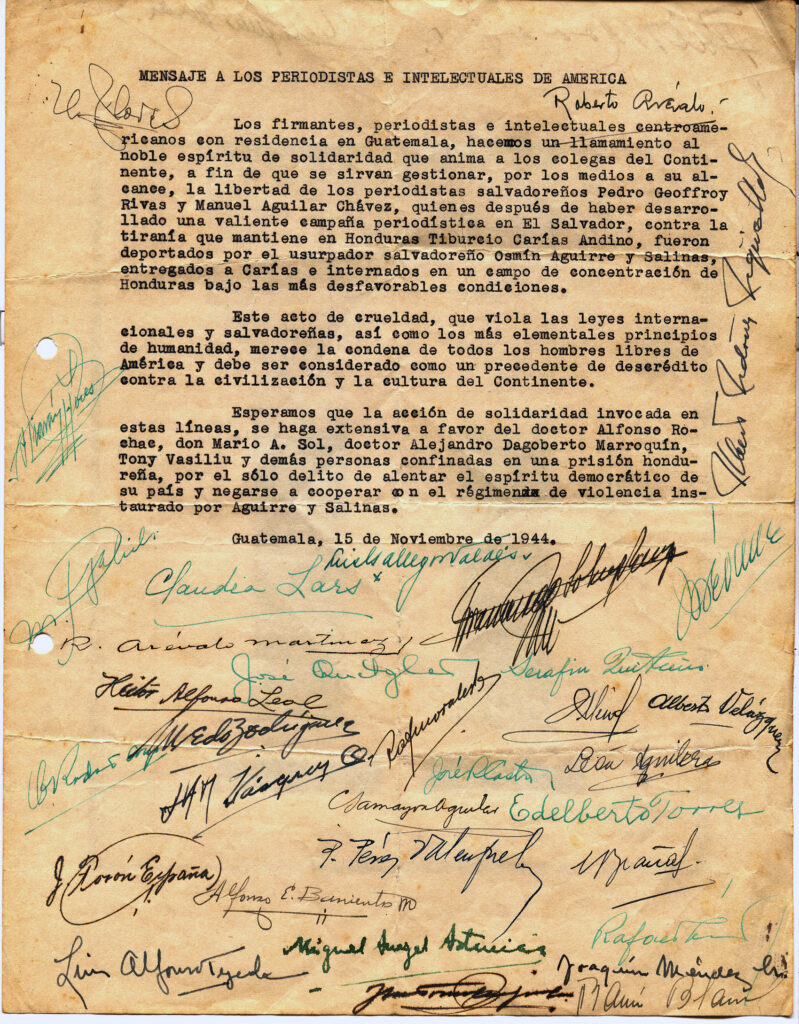 MENSAJE A LOS PERIODISTAS E INTELECTUALES DE AMERICA
Roberto Arévalo.
Los firmantes, periodistas e intelectuales centroame-
ricanos con residencia en Guatemala, hacemos un llamamiento al
noble espíritu de solidaridad que anima a los colegas del Conti-
nente, a fin de que se sirvan gestionar, por los medios a su al-
cance, la libertad de los periodistas salvadoreños Pedro Geoffroy
Rivas y Manuel Aguilar Chávez, quienes después de haber desarro-
llado una valiente campaña periodística en El Salvador, contra la
tiranía que mantiene en Honduras Tiburcio Carías Andino, fueron
deportados por el usurpador salvadoreño Osmín Aguirre y Salinas,
entregados a Carías e internados en un campo de concentración de
Honduras bajo las más desfavorables condiciones.
Este acto de crueldad, que viola las leyes interna-
cionales y salvadoreñas, así como los más elementales principios
de humanidad, merece la condena de todos los hombres libres de
América y debe ser considerado como un precedente de descrédito
contra la civilización y la cultura del Continente.
Esperamos que la acción de solidaridad invocada en
estas líneas, se haga extensiva a favor del doctor Alfonso Ro-
chac, don Mario A. Sol, doctor Alejandro Dagoberto Marroquín,
Tony Vasiliu y demás personas confinadas en una prisión hondu-
reña, por el sólo delito de alentar el espíritu democrático de
su país y negarse a cooperar con el régimen de violencia ins-
taurado por Aguirre y Salinas.
Guatemala, 15 de Noviembre de 1944.
Luis Gallegos Valdés
Claudia Lars
R. Arévalo Martínez
José Quetglas Serafín Quiteño
Alfonso Leal
Alberto Velázquez
Vásquez
León Aguilera
José Castro
Chamayoa Aguilar Edelberto Torres
P. Pérez Valenzuela
España
Alfonso E. Barrientos M
Miguel Angel Asturias
Luis Alfonso Tejeda Joaquín Méndez